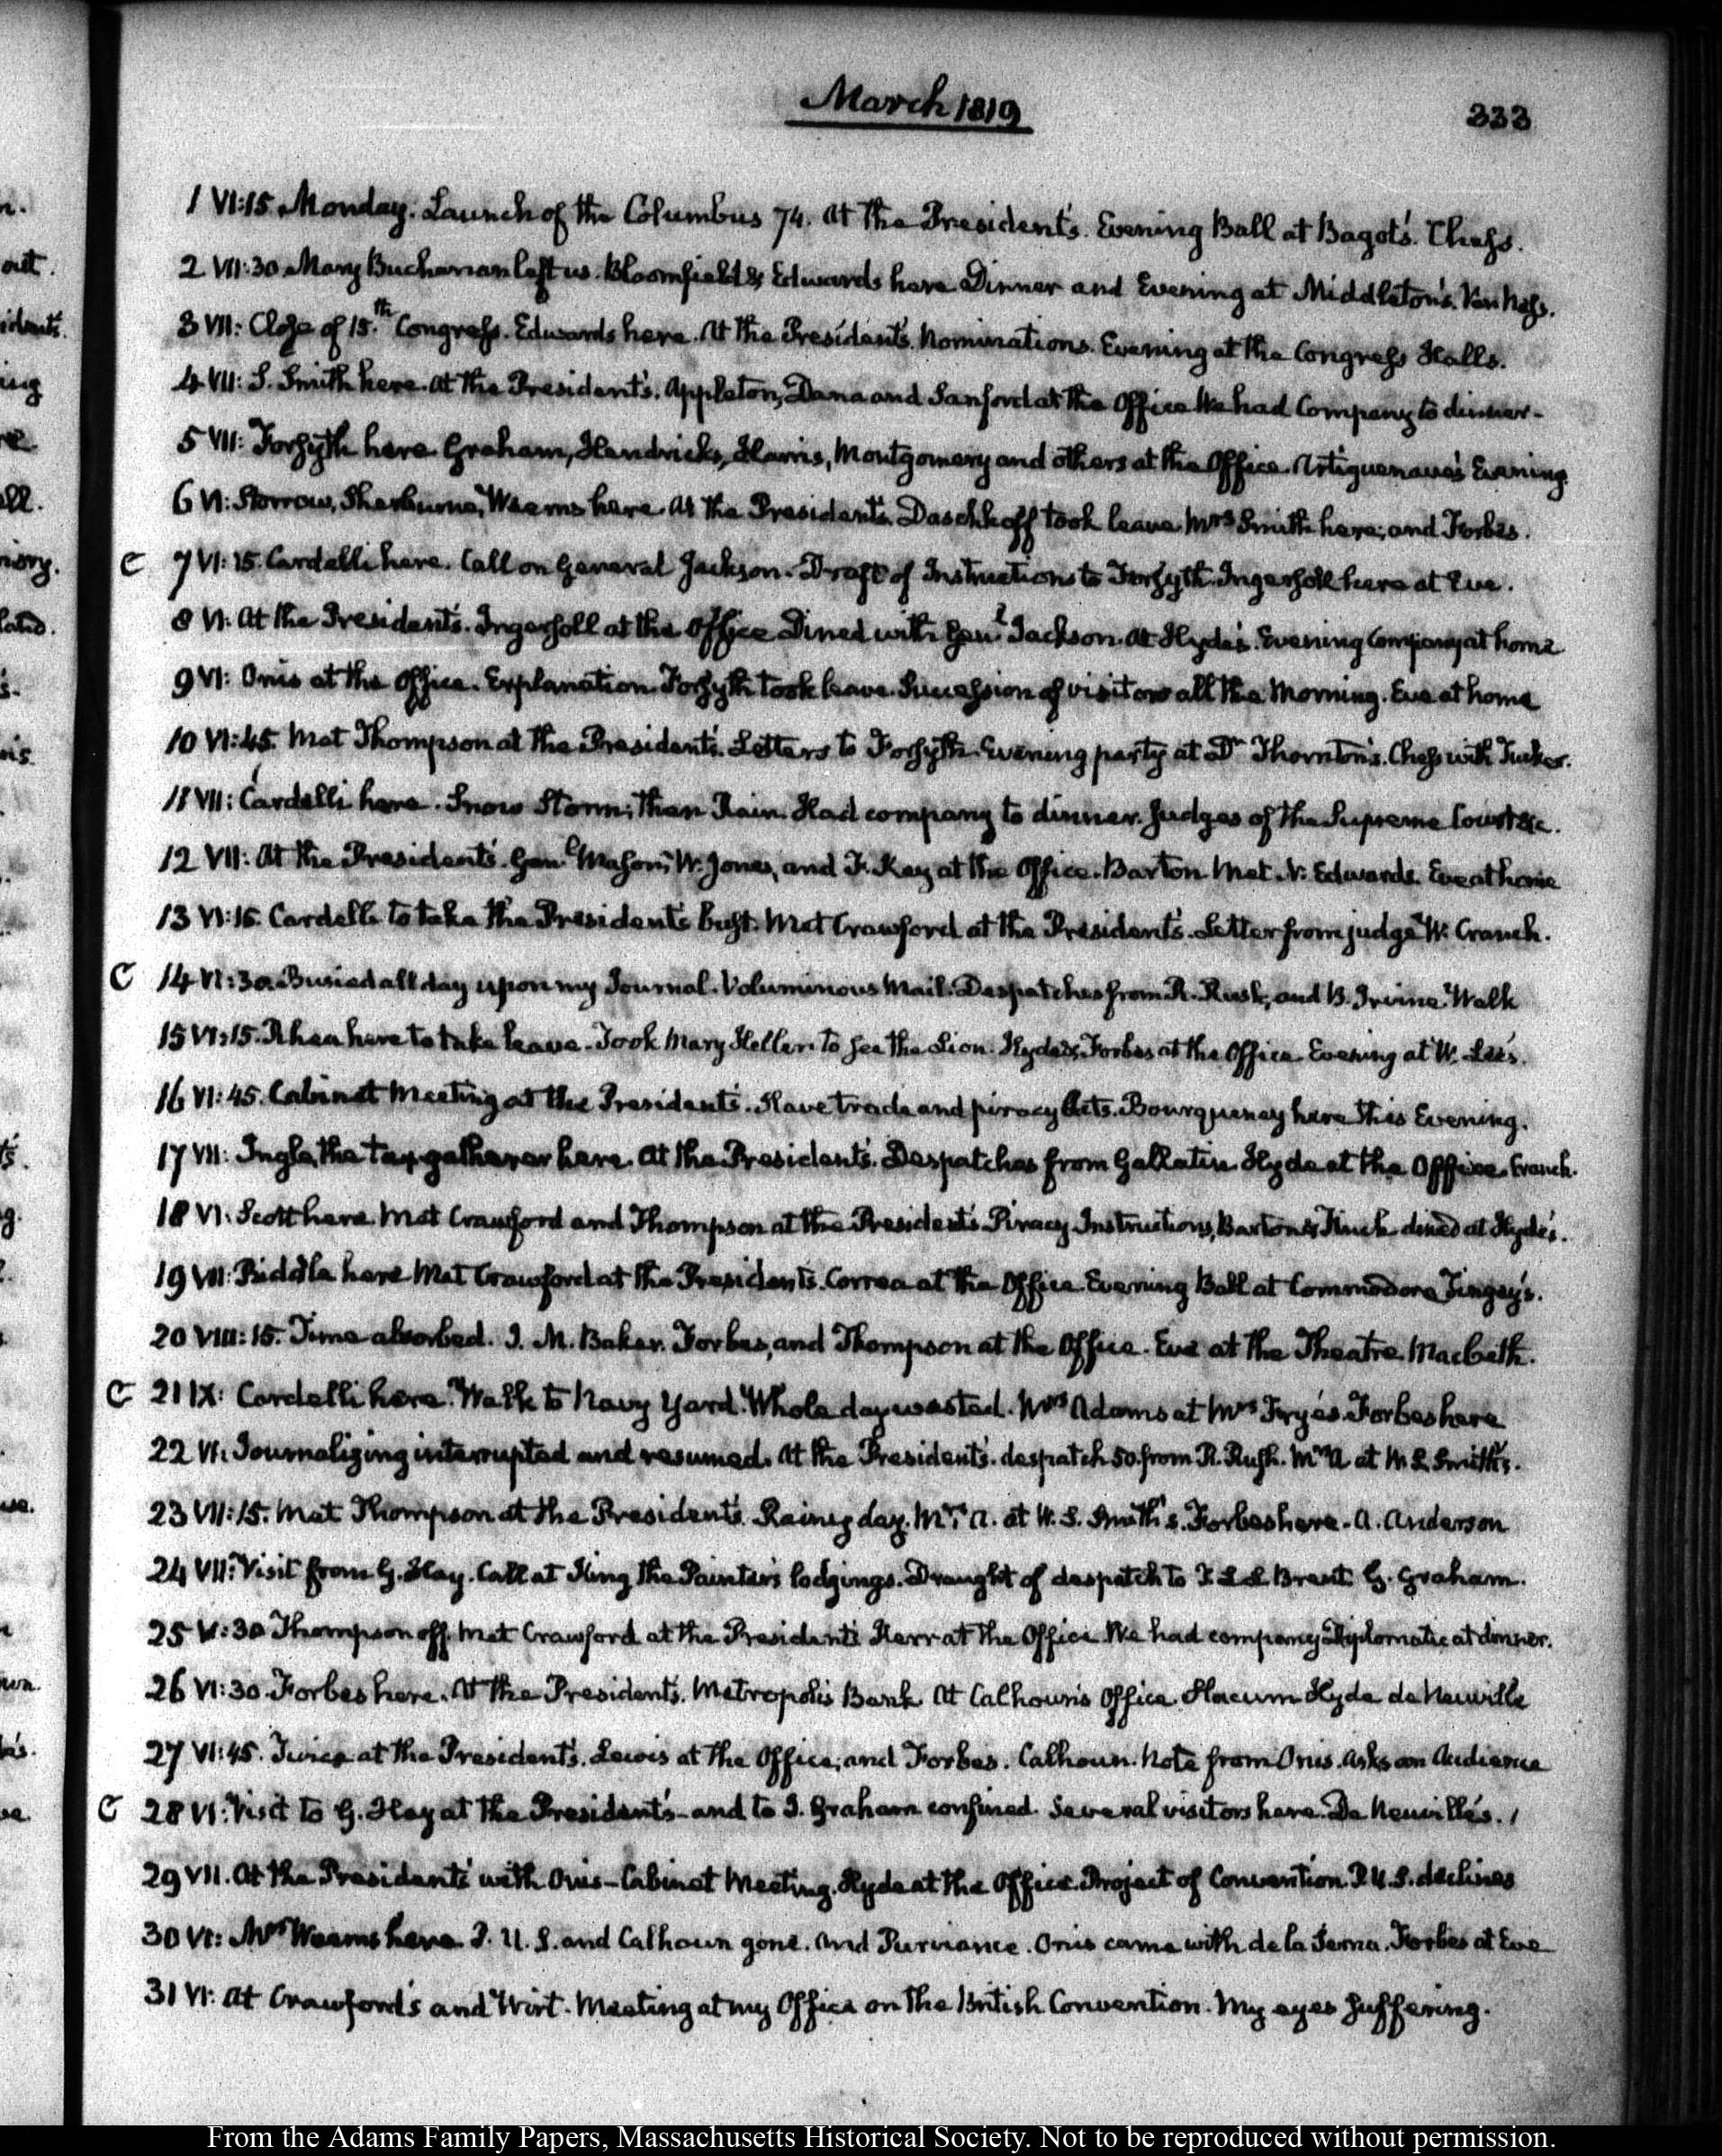 March 1819
333
1 VI:15. Monday. Launch of the Columbus 74. At the President's. Evening Ball at Bagot's. Chess.
2 VII:30 Mary Buchanan left us. Bloomfield & Edwards here Dinner and Evening at Middleton's. Van Ness.
3 VII: Close of 15.th Congress. Edwards here. At the President's. Nominations. Evening at the Congress Halls.
4 VII: S. Smith here. At the President's. Appleton, Dana and Sanford at the Office We had Company to dinner-
5 VII: Forsyth here Graham, Hendricks, Harris, Montgomery and others at the Office. Artiguenave's Evening.
6 VI: Storrow, Sherburne, Weems here. At the President's. Daschkoff took leave Mrs Smith here; and Forbes.
C 7 VI:15. Cardelli here. Call on General Jackson. Draft of Instructions to Forsyth. Ingersoll here at Eve.
8 VI. At the President's. Ingersoll at the Office Dined with Gen.l Jackson. At Hyde's. Evening Company at home
9 VI: Onis at the Office. Explanation. Forsyth took leave. Succession of visitors all the Morning. Eve at home
10 VI:45. Met Thompson at the President's. Letters to Forsyth. Evening party at Dr Thornton's. Chess with Tucker.
11 VII: Cardelli here. Snow Storm; then Rain. Had company to dinner. Judges of the Supreme Court &c.
12 VII: At the President's. Gen.l Mason, W. Jones, and F. Key at the Office. Barton Met N. Edwards. Eve at home
13 VI:15. Cardelli to take the President's bust. Met Crawford at the President's. Letter from judge W. Cranch.
C 14 VI:30. Busied all day upon my Journal. Voluminous Mail. Despatches from R. Rush, and B. Irvine. Walk
15 VI:15. Rhea here to take leave. Took Mary Hellen to see the Lion. Hyde & Forbes at the Office Evening at W. Lee's.
16 VI:45. Cabinet Meeting at the President's. Slave trade and piracy Acts. Bourqueney here this Evening.
17 VII: Ingle, the tax-gatherer here. At the President's. Despatches from Gallatin Hyde at the Office. Cranch.
18 VI. Scott here. Met Crawford and Thompson at the President's Piracy Instructions, Barton & dined at Hyde's.
19 VII: Biddle here Met Crawford at the President's. Correa at the Office. Evening Ball at Commodore Tingey's.
20 VIII:15. Time absorbed. J. M. Baker. Forbes, and Thompson at the Office. Eve at the Theatre. Macbeth.
C 21 IX: Cardelli here. Walk to Navy Yard. Whole day wasted. Mrs Adams at Mrs Frye's. Forbes here
22 VI: Journalizing interrupted and resumed. At the President's. despatch 50. from R. Rush. Mrs A at W. S. Smith's.
23 VII:15. Met Thompson at the President's. Rainy day. Mrs A. at W. S. Smith's. Forbes here. A. Anderson
24 VII: Visit from G. Hay. Call at King the Painter's lodgings. Draught of despatch to T. L. L. Brent. G. Graham.
25 V:30 Thompson off. Met Crawford at the President's Kerr at the Office. We had company Diplomatic at dinner.
26 VI:30. Forbes here. At the President's. Metropolis Bank At Calhoun's Office. Slacum Hyde de Neuville
27 VI:45. Twice at the President's. Lewis at the Office; and Forbes. Calhoun. Note from Onis. Asks an Audience
C 28 VI: Visit to G. Hay at the President's - and to J. Graham confined. Several visitors here. De Neuville's.
29 VII. At the President's with Onis - Cabinet Meeting. Hyde at the Office. Project of Convention. P. U. S. declines
30 VI: Mrs Weems here. P. U. S. and Calhoun gone. And Purviance. Onis came with de la Serna. Forbes at Eve
31 VI: At Crawford's and Wirt. Meeting at my Office on the British Convention. My eyes suffering.
From the Adams Family Papers, Massachusetts Historical Society. Not to be reproduced without permission.